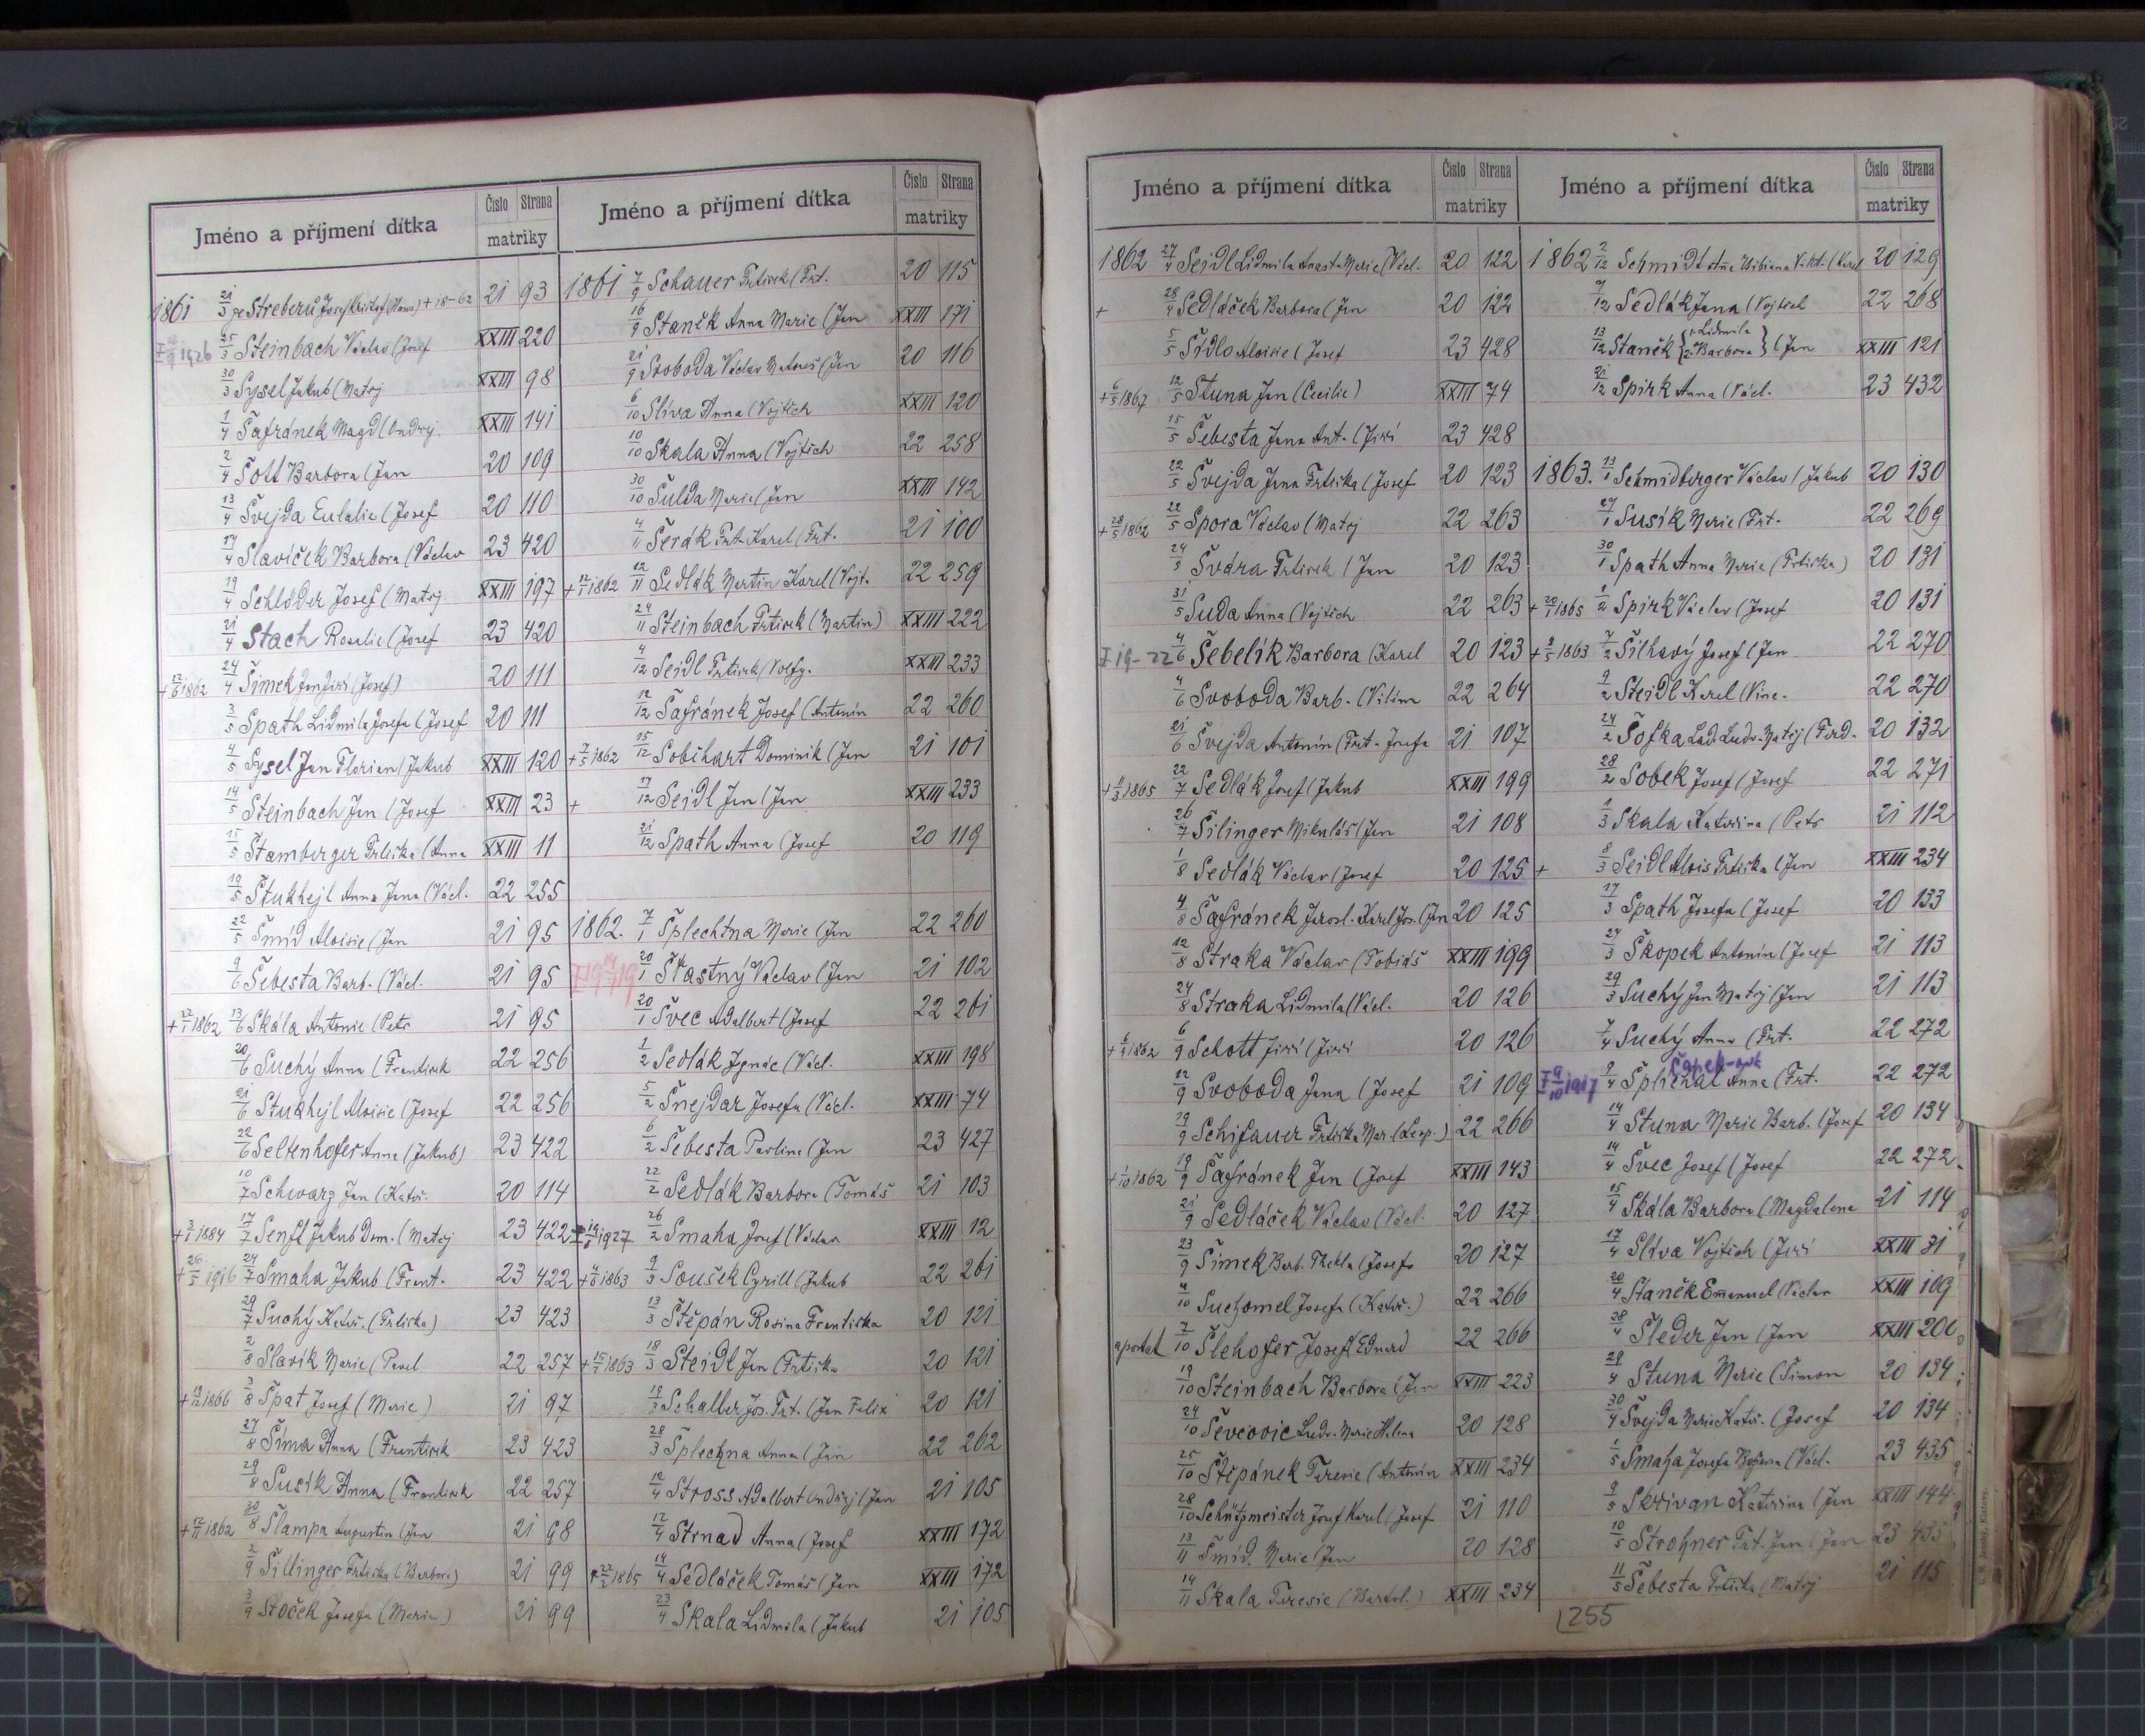 Jméno a příjmení dítka Číslo Strana matriky
1861 21/3 ze Streberů Josef + 18-62 21 93
1926 25/3 Steinbach Václav (Josef XXIII 220
30/3 Sysel Jakub (Matěj XXIII 98
1/4 Šafránek Magd (Ondřej. XXIII 141
2/4 Šott Barbora (Jan 20 109
13/4 Švejda Eulalie (Josef 20 110
17/4 Slavíček Barbora (Václav 23 420
19/4 Schlöder Josef (Matěj XXIII 197
21/4 Stach Rosalie (Josef 23 420
+ 12/6 1862 24/4 Šimek Jan Jiří (Josef) 20 111
3/5 Spath Lidmila Josefa (Josef 20 111
4/5 Sysel Jan Florian (Jakub XXIII 120
14/5 Steinbach Jan (Josef XXIII 23
15/5 Štamberger Frtiška (Anna XXIII 11
19/5 Štukhejl Anna Jana (Václ. 22 255
22/5 Šmíd Aloisie (Jan 21 95
9/6 Šebesta Barb. (Václ. 21 95
+ 22/1 1862 13/6 Skála Antonie (Petr 21 95
20/6 Suchý Anna (Frantisek 22 256
21/6 Stukhejl Aloisie (Josef 22 256
22/6 Seltenhofer Anna (Jakub) 23 422
10/7 Schwarz Jan (Kateř. 20 114
+ 3/1 1884 17/7 Senft Jakub Dom. (Matěj 23 422
+ 26/5 1916 24/7 Smaha Jakub (Frant. 23 422
29/7 Suchý Kateř. (Frtiška) 23 423
2/8 Slavík Marie (Pavel 22 257
+ 19/12 1866 3/8 Špat Josef (Marie) 21 97
27/8 Šíma Anna (Frantisek 23 423
29/8 Susík Anna (Frantisek 22 257
+ 12/11 1862 30/8 Šlampa Augustin (Jan 21 98
2/9 Šillinger Frtiška (Barbora) 21 99
3/9 Stoček Josefa (Marie) 21 99
Jméno a příjmení dítka Číslo Strana matriky
1861 7/9 Schauer Frtisek (Frt. 20 115
16/9 Staněk Anna Marie (Jan XXIII 171
21/9 Svoboda Václav Matouš (Jan 20 116
6/10 Slíva Anna (Vojtěch XXIII 120
10/10 Skala Anna (Vojtěch 22 258
30/10 Šulda Marie (Jan XXIII 142
4/11 Šerák Frt. Karel (Frt. 21 100
+ 12/1 1862 12/11 Sedlák Martin Karel (Vojt. 22 259
24/11 Steinbach Frtisek (Martin) XXIII 222
4/12 Seidl Frtisek (Volfg. XXIII 233
12/12 Šafránek Josef (Antonín 22 260
+ 7/5 1862 15/12 Sobíhart Dominik (Jan 21 101
+ 17/12 Seidl Jan (Jan XXIII 233
21/12 Spath Anna (Josef 20 119
1862. 7/1 Šplechtna Marie (Jan 22 260
20/1 Šťastný Václav (Jan 21 102
20/1 Švec Adalbert (Josef 22 261
1/2 Sedlák Ignác (Václ. XXIII 198
5/2 Šnejdar Josefa (Václ. XXIII 74
6/2 Šebesta Pavlina (Jan 23 427
22/2 Sedlák Barbora (Tomáš 21 103
1927 26/2 Smaha Josef (Václav XXIII 12
+ 4/6 1863 9/3 Souček Cyrill (Jakub 22 261
13/3 Štěpán Rosina Frantiska 20 121
+ 15/2 1863 18/3 Steidl Jan (Frtiška 20 121
19/3 Schaller Jos. Frt. (Jan Felix 20 121
28/3 Šplechna Anna (Jan 22 262
12/4 Stross Adalbert Ondřej (Jan 21 105
12/4 Strnad Anna (Josef XXIII 172
+ 22/2 1865 14/4 Sedláček Tomáš (Jan XXIII 172
23/4 Skala Lidmila (Jakub 21 105
Jméno a příjmení dítka Číslo Strana matriky
1862 27/4 Seidl Lidmila Anast. Marie (Václ. 20 122
+ 28/4 Sedláček Barbora (Jan 20 122
5/5 Šídlo Aloisie (Josef 23 428
+ 6/5 1867 12/5 Stuna Jan (Cecilie) XXIII 74
15/5 Šebesta Jana Ant. (Jiří 23 428
22/5 Švejda Jana Frtiška (Josef 20 123
+ 28/5 1862 22/5 Spora Václav (Matěj 22 263
24/5 Švára Frtisek (Jan 20 123
31/5 Suda Anna (Vojtěch 22 263
19-22 4/6 Šebelík Barbora (Karel 20 123
4/6 Svoboda Barb. (Vilím 22 264
21/6 Švejda Antonín (Frt. Josefa 21 107
1865 22/7 Sedlák Josef (Jakub XXIII 199
26/7 Šilinger Mikuláš (Jan 21 108
1/8 Sedlák Václav (Josef 20 125
4/8 Šafránek Jarosl. Karel Jos. (Jan 20 125
12/8 Straka Václav (Tobiáš XXIII 199
24/8 Straka Lidmila (Václ. 20 126
+ 6/9 1862 6/9 Schott Jiří (Jiří 20 126
12/9 Svoboda Jana (Josef 21 109
19/9 Schifauer Frtiška Mar. (Leop.) 22 266
+ 1/10 1862 19/9 Šafránek Jan (Josef XXIII 143
21/9 Sedláček Václav (Václ. 20 127
23/9 Šimek Barb. Thekla (Josefa 20 127
4/10 Suchomel Josefa (Kateř.) 22 266
apostat 7/10 Šlehofer Josef Eduard 22 266
19/10 Steinbach Barbora (Jan XXIII 223
24/10 Ševcovic Ludv. Marie Helena 20 128
25/10 Štěpánek Teresie (Antonín XXIII 234
28/10 Schützmeister Josef Karel (Josef 21 110
13/11 Šmíd Marie (Jan 20 128
14/11 Skala Teresie (Bartol.) XXIII 234
Jméno a příjmení dítka Číslo Strana matriky
1862 2/12 Schmidt (Karel 20 129
7/12 Sedlák Jana (Vojtěch 22 268
13/12 Staněk {1. Lidmila 2. Barbora} (Jan XXIII 121
21/12 Spirk Anna (Václ. 23 432
1863. 13/1 Schmidberger Václav (Jakub 20 130
27/1 Susík Marie (Frt. 22 269
30/1 Spath Anna Marie (Frtiška) 20 131
+ 20/1 1865 1/2 Spirk Václav (Josef 20 131
+ 9/5 1863 7/2 Šilhavý Josef (Jan 22 270
9/2 Steidl Karel (Vinc. 22 270
24/2 Šofka Lad. Ludv. Matěj (Ferd. 20 132
28/2 Sobek Josef (Josef 22 271
1/3 Skala Kateřina (Petr 21 112
+ 8/3 Seidl Alois Frtiška (Jan XXIII 234
17/3 Spath Josefa (Josef 20 133
27/3 Skopek Antonín (Josef 21 113
29/3 Suchý Jan Matěj (Jan 21 113
7/4 Suchý Anna (Frt. 22 272
9/10 1917 9/4 Šplíchal Anna (Frt. 22 272
14/4 Stuna Marie Barb. (Josef 20 134
14/4 Švec Josef (Josef 22 272
15/4 Skála Barbora (Magdalena 21 114
17/4 Slíva Vojtěch (Jiří XXIII 31
20/4 Staněk Emanuel (Václav XXIII 109
28/4 Šleder Jan (Jan XXIII 200
29/4 Stuna Marie (Šimon 20 134
30/4 Švejda Marie Kateř. (Josef 20 134
1/5 Smaha Josefa Božena (Václ. 23 435
9/5 Skřivan Kateřina (Jan XXIII 144
10/5 Strohner Frt. Jan (Jan 23 435
11/5 Šebesta Frtiška (Matěj 21 115
255